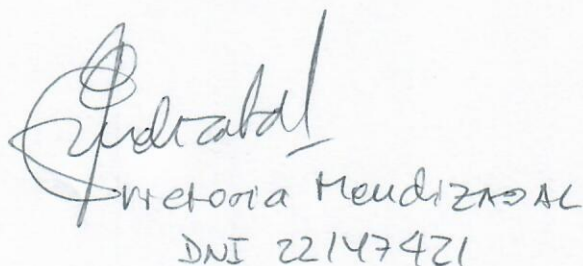 Victoria MendizABAL
DNI 22147421